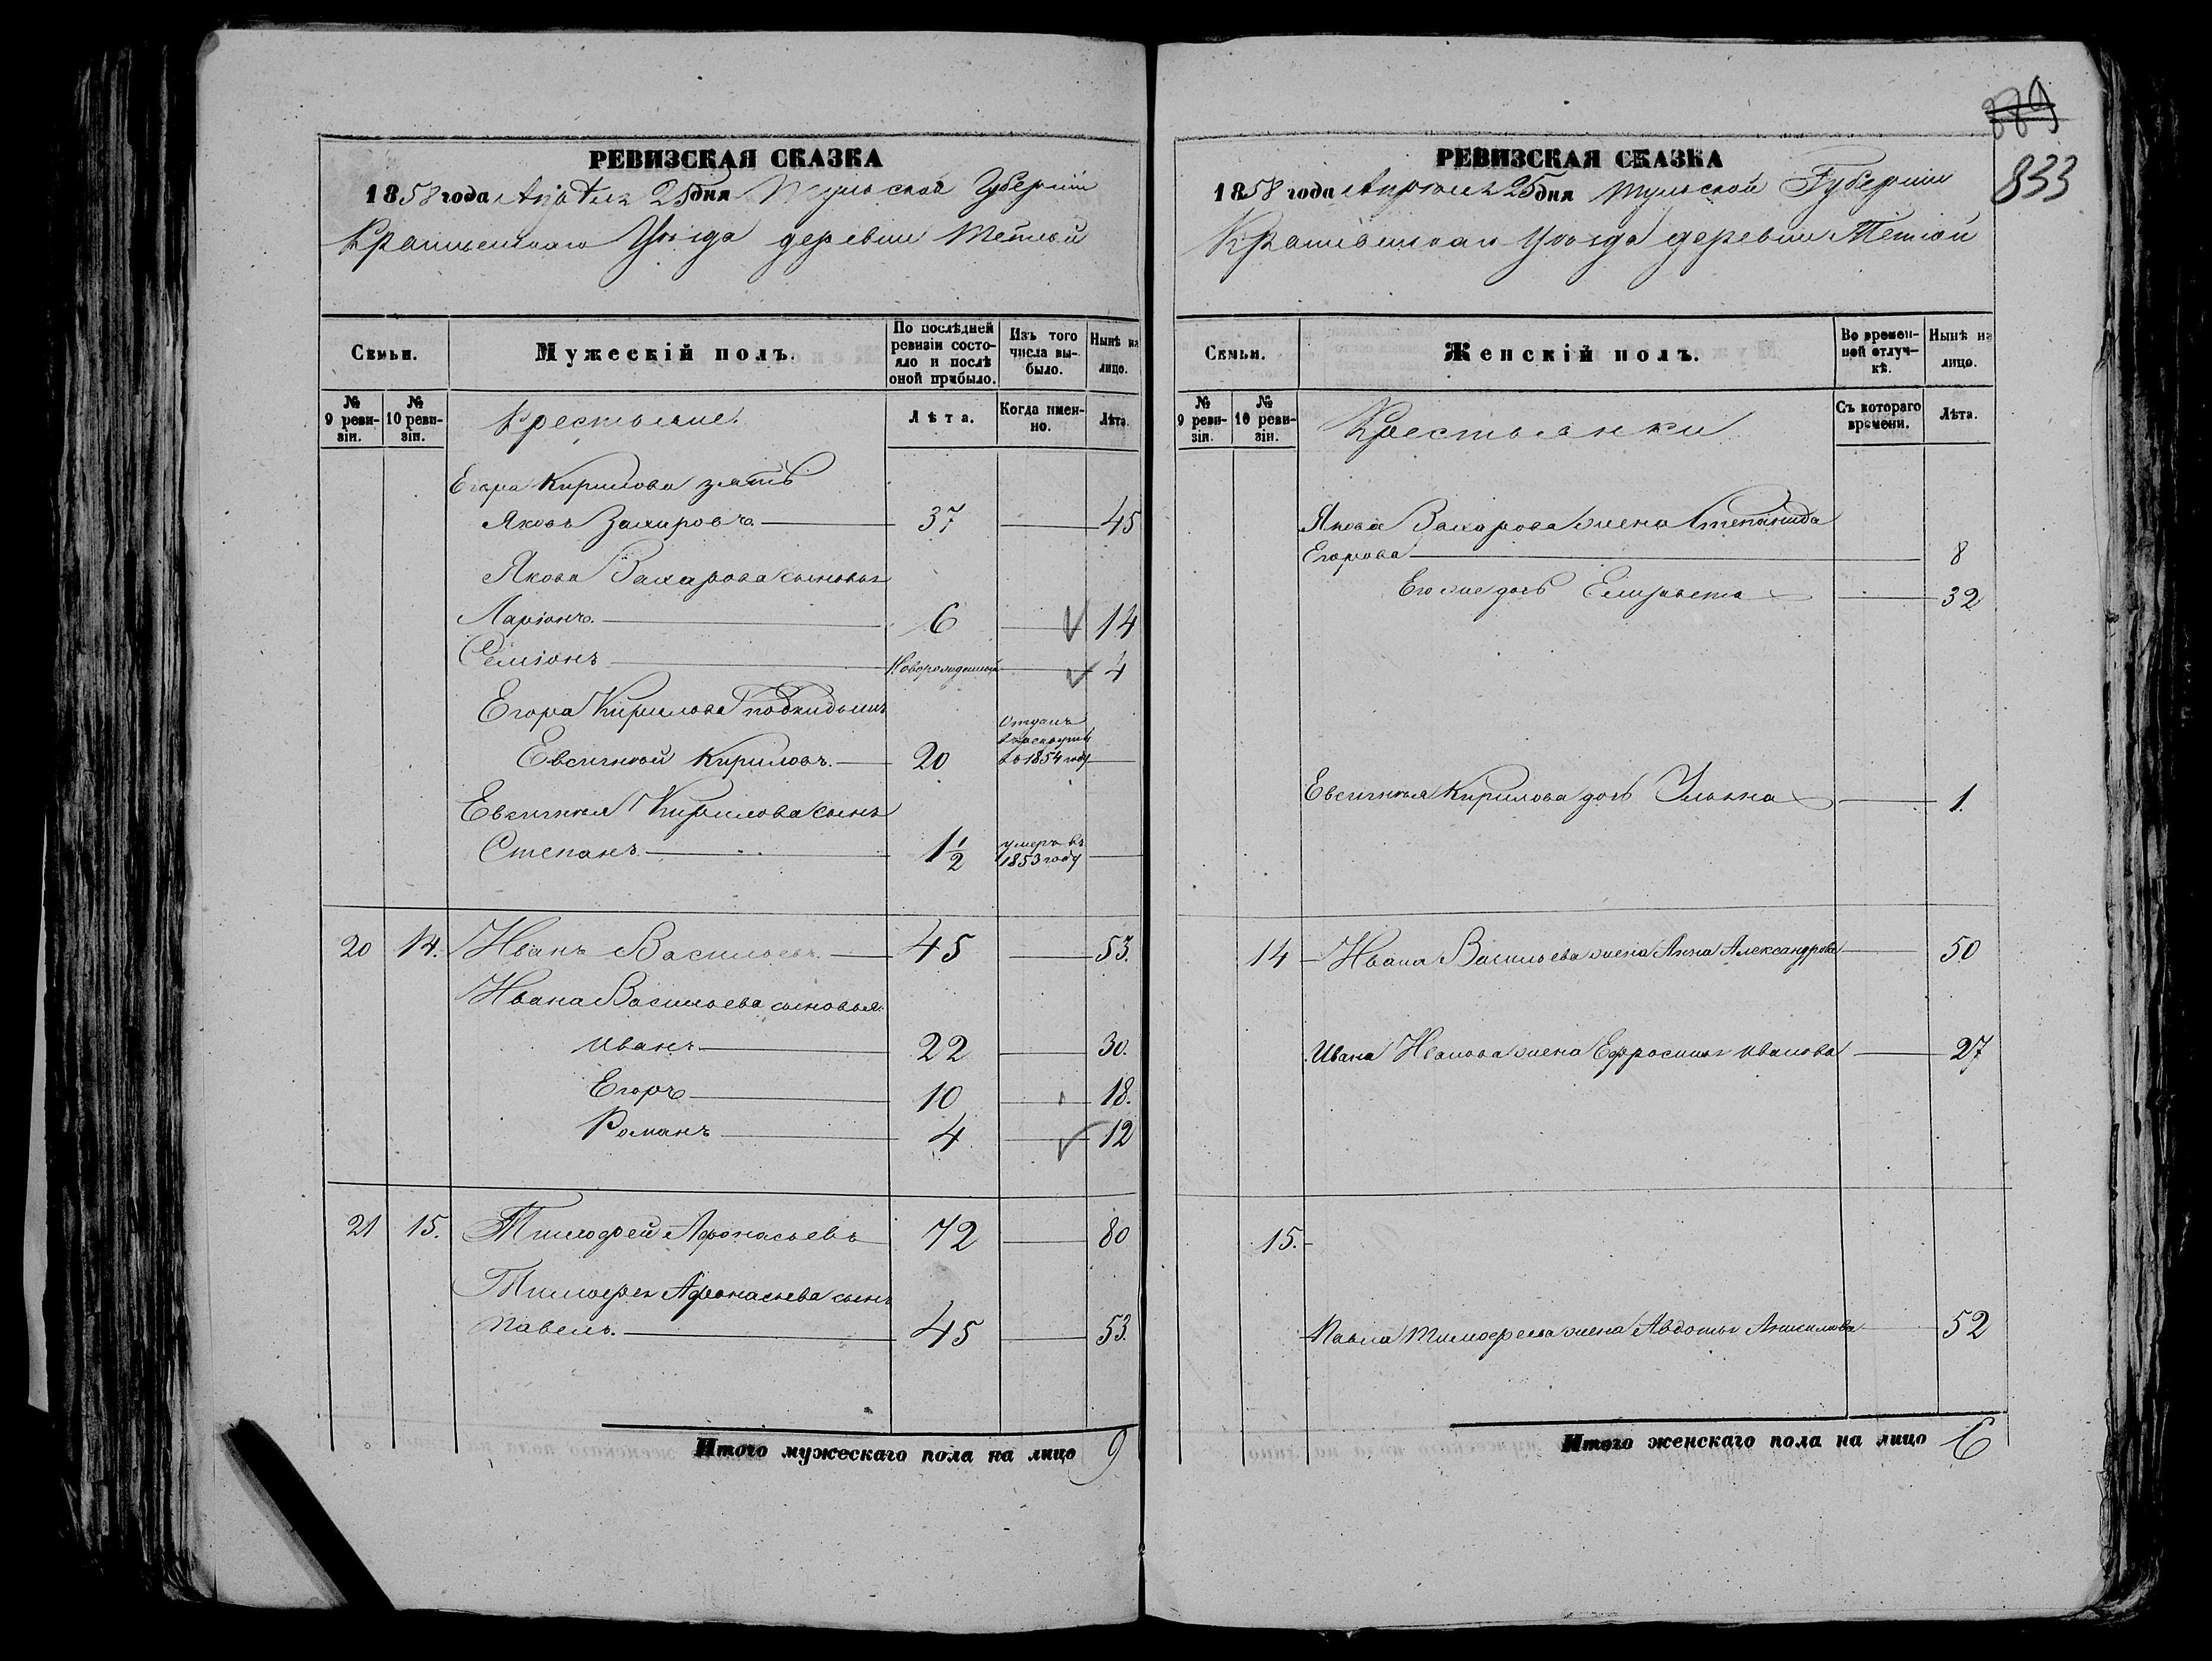 РЕВИЗСКАЯ СКАЗКА
1858 года Апреля 25 дня Тульской Губернiи
Крапивенскаго Уѣзда деревни
Семьи.
Мужескiй полъ.
По послѣдней ревизiи состо-
яло и послѣ оной прибыло.
Изъ того числа вы-
было.
Нынѣ на лицо.
№ 9 реви-
зiи.
№ 10 реви-
зiи.
Крестьяне.
Лѣта.
Когда имен-
но.
Лѣта.
Егора Кирилова зять
Яковъ Захаровъ 37 45
Якова Захарова сыновья
Ларiонъ. 6 14
Семiонъ Новорожденный 4
Егора Кирилова Подкидышъ
Евсигней Кириловъ. 20 Отданъ в рекруты въ 1854 году
Евсигнея Кирилова сынъ
Степанъ 1 1/2 умеръ въ 1853 году
20 14. Иванъ Васильевъ. 45 53.
Ивана Васильева сыновья
Иванъ 22 30.
Егоръ 10 18.
Романъ 4 12
21 15. Тимофей Афонасьевъ 72 80
Тимофея Афонасьева сынъ
Павелъ. 45 53.
Итого мужескаго пола на лицо 9
889
833
РЕВИЗСКАЯ СКАЗКА
1858 года Апреля 25 дня Тульской Губернiи
Крапивенскаго Уѣзда деревни
Семьи.
Женскiй полъ.
Во времен-
ной отлуч-
кѣ.
Нынѣ на лицо.
№ 9 реви-
зiи.
№ 10 реви-
зiи.
Крестьянки
Съ котораго времени.
Лѣта.
Якова Захарова жена Степанида
Егорова 8
Его же дочь Елизавета 32
Евсигнея Кирилова дочь Ульяна 1.
14 Ивана Васильева жена Анна Александрова 50
Ивана Иванова жена Ефросинья Иванова 27
15.
Павла Тимофеева жена Авдотья 52
Итого женскаго пола на лицо 6